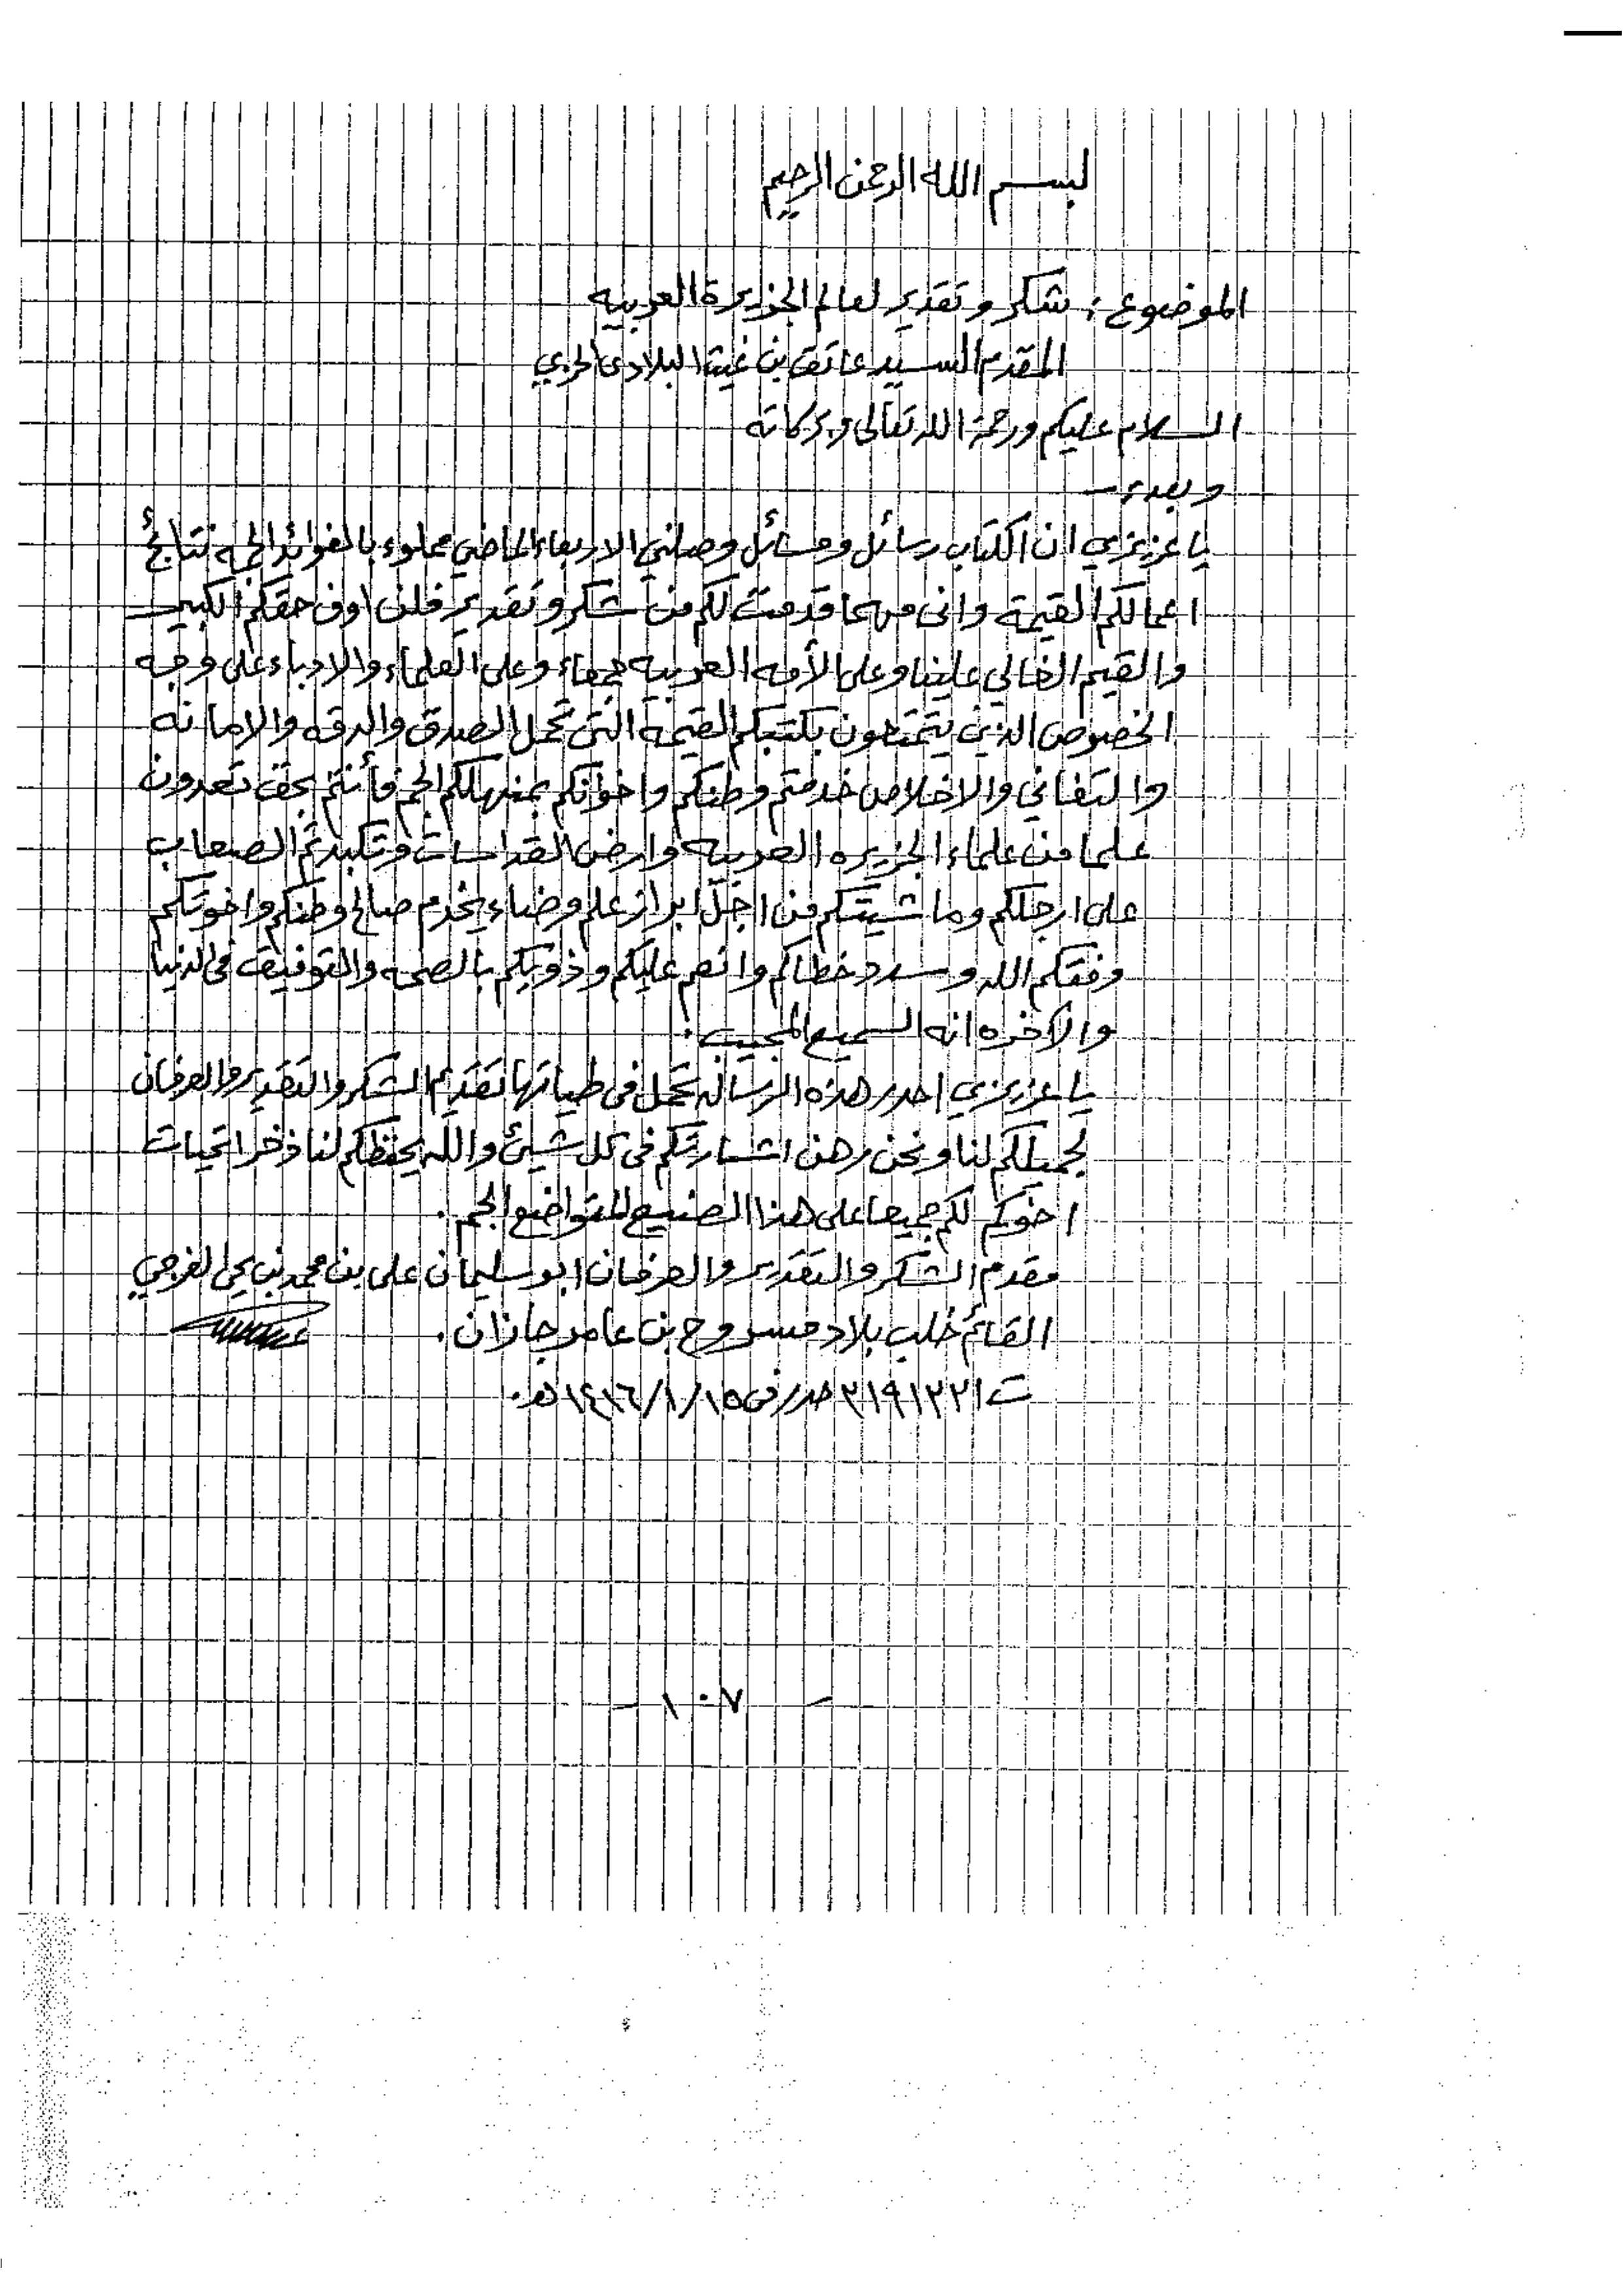 بسم الله الرحمن الرحيم
الموضوع : شكر وتقدير لعالم الجزيرة العربيه
المقدم السيد عاتق بن غيث البلادى الحربي
السلام عليكم ورحمة الله تعالى وبركاته
وبعد :-
يا عزيزي ان الكتاب رسائل ومسائل وصلني الاربعاء الماضي مملوء بالفوائد الجمه نتائج
اعمالكم القيمة وانى مهما قدمت لكم من شكر وتقدير فلن اوف حقكم الكبير
والقيم الغالي علينا وعلى الأمه العربيه جمعاء وعلى العلماء والادباء على وجه
الخصوص الذين يتمتعون بكتبكم القيمه التى تحمل الصدق والدقه والامانه
والتفاني والاخلاص خدمتم وطنكم واخوانكم بمنهالكم الجم فأنتم بحق تعدون
علما من علماء الجزيره العربيه وارض القداسات وتكبدتم الصعاب
على ارجلكم وماشيتكم من اجل ابراز علم وضاء يخدم صالح وطنكم واخوتكم
وفقكم الله وسدد خطاكم وانعم عليكم وذويكم بالصحه والتوفيق فى الدنيا
والآخره انه السميع المجيب .
يا عزيزي احرر هذه الرساله تحمل فى طياتها تقديم الشكر والتقدير والعرفان
لجميلكم لنا ونحن رهن اشارتكم فى كل شيئ والله يحفظكم لنا ذخرا تحيات
اخوكم لكم جميعا على هذا الصنيع المتواضع الجم .
مقدم الشكر والتقدير والعرفان ابو سليمان على بن محمد بن يحى الفرجي
القائم خلب بلاد مسروح بن عامر جازان .
ت ٣١٩١٢٢١ حرر فى ١٤١٦/١/١٥ هـ .
- ١٠٧ -